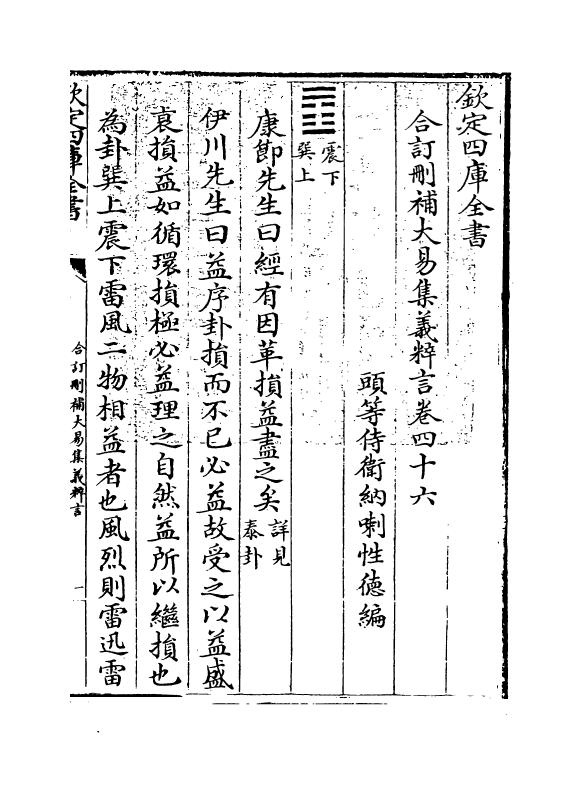 欽定四庫全書
合訂刪補大易集義粹言卷四十六
頭等侍衛納喇性德編
䷩
震下
巽上
康節先生曰經有因革損益盡之矣
詳見
泰卦
伊川先生曰益序卦損而不已必益故受之以益盛
衰損益如循環損極必益理之自然益所以繼損也
為卦巽上震下雷風二物相益者也風烈則雷迅雷
欽定四庫全書
合訂刪補大易集義粹言
一